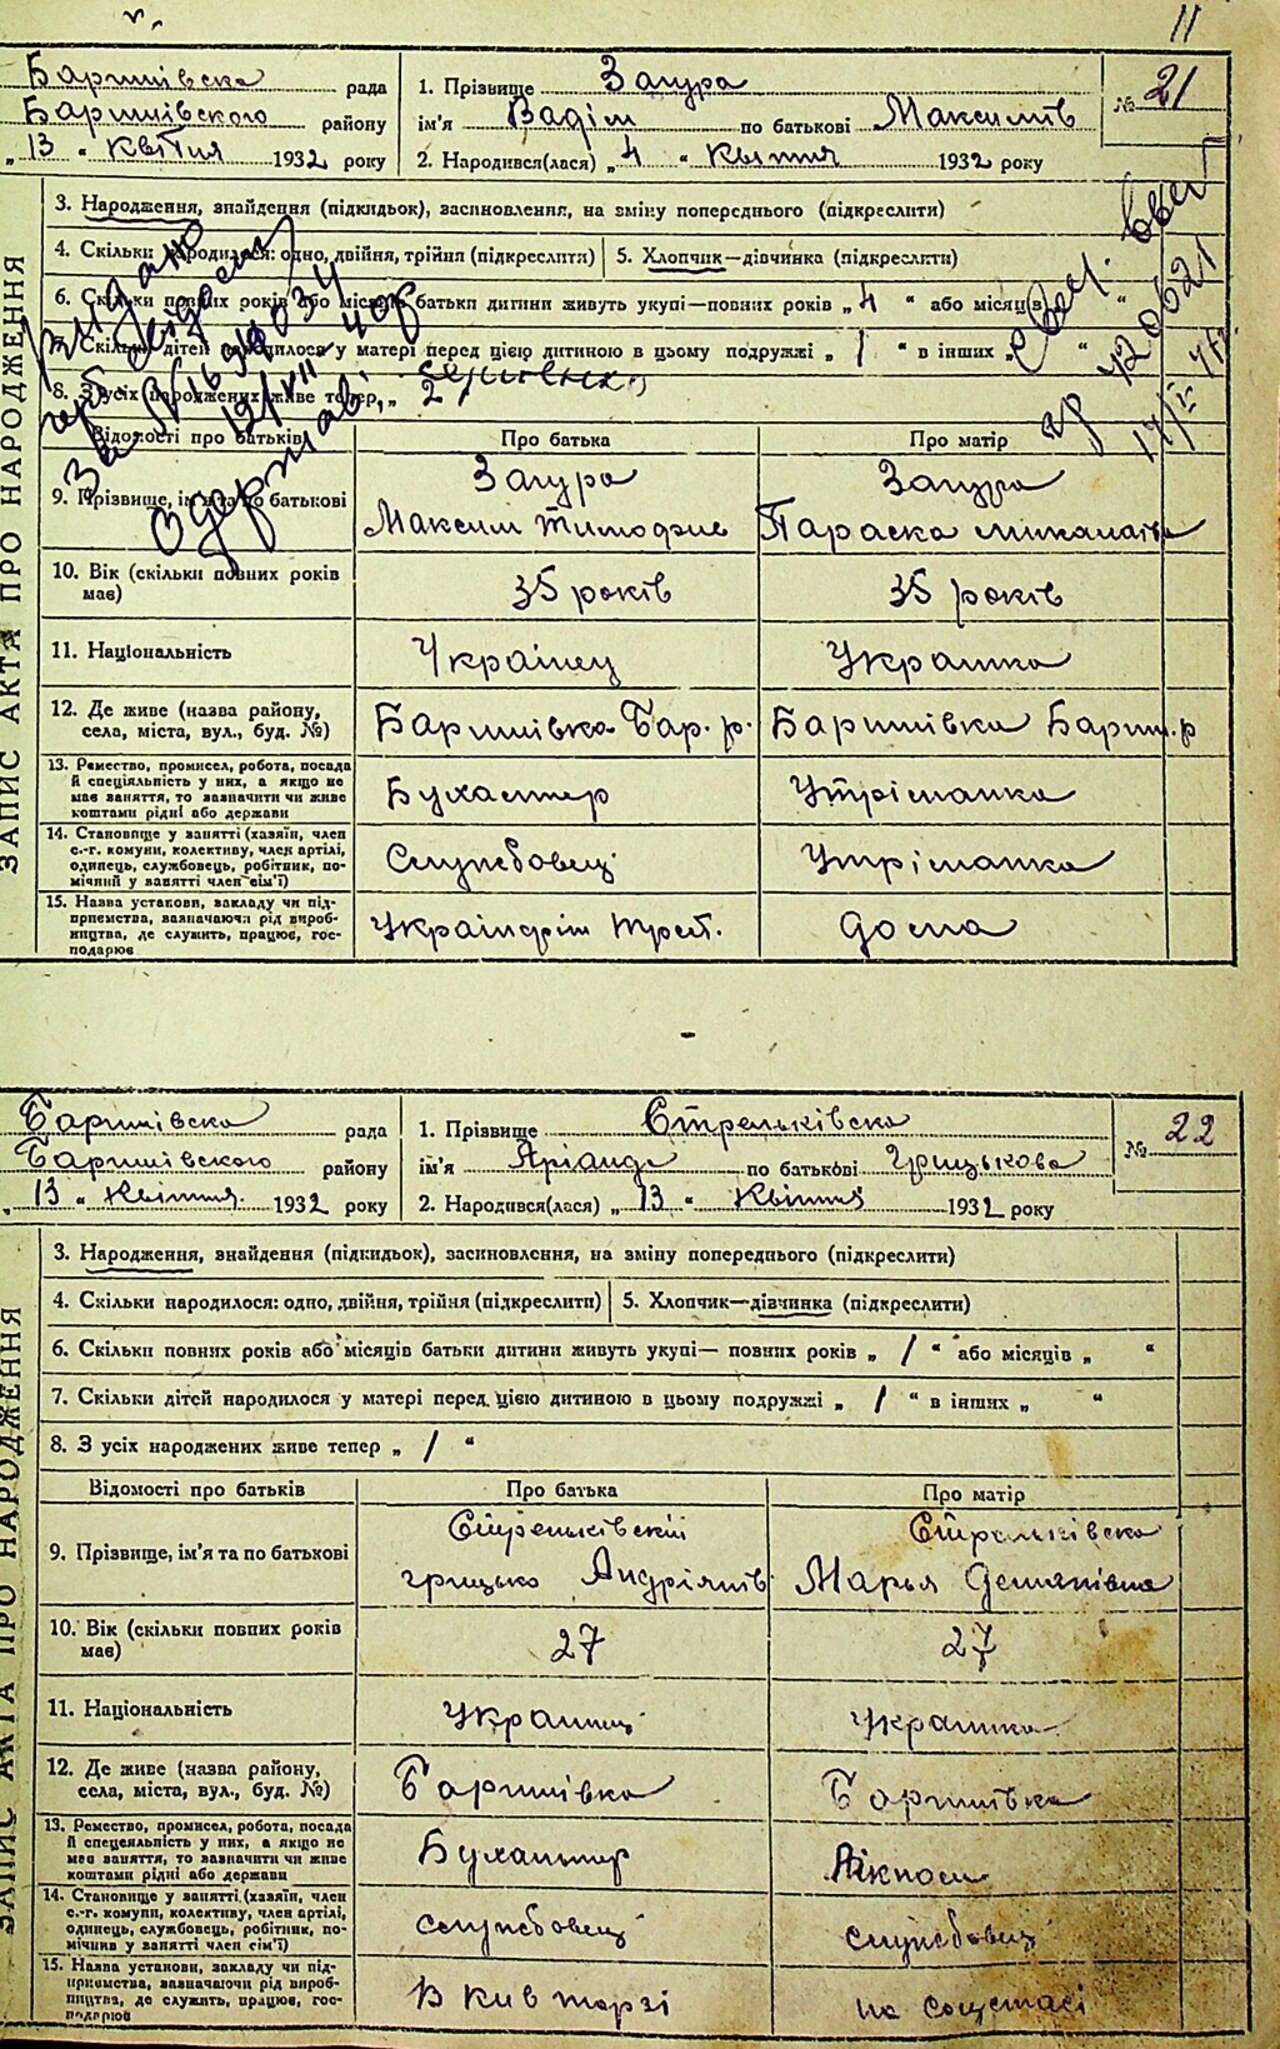 11
Баришівска рада
Баришівского району
„ 13 “ Квітня 1932 року
1. Прізвище Загура
ім'я Вадім по батькові Максимів
2. Народився(лася) „ 4 “ Квітня 1932 року
№ 21
ЗАПИС АКТА ПРО НАРОДЖЕННЯ
3. Народження, знайдення (підкидьок), засиновлення, на зміну попереднього (підкреслити)
4. Скільки народилося: одно, двійня, трійня (підкреслити) 5. Хлопчик—дівчинка (підкреслити)
6. Скільки повних років або місяців батьки дитини живуть укупі—повних років „ 4 “ або місяців „ “
7. Скільки дітей народилося у матері перед цією дитиною в цьому подружжі „ 1 “ в інших „ “
8. З усіх народжених живе тепер „ 2 “
Відомості про батьків Про батька Про матір
9. Прізвище, ім'я та по батькові
Загура
Максим Тимофіє
Загура
Параска
10. Вік (скільки повних років має)
35 років 35 років
11. Національність Українец Українка
12. Де живе (назва району, села, міста, вул., буд. №)
Баришівка Бар. р. Баришівка Бариш. р
13. Ремество, промисел, робота, посада
й спеціяльність у них, а якщо не
має заняття, то зазначити чи живе
коштами рідні або держави
Бухалтер Утріманка
14. Становище у занятті (хазяїн, член
с.-г. комуни, колективу, член артілі,
одинець, службовець, робітник, по-
мічний у занятті член сім'ї)
Службовец Утріманка
15. Назва установи, закладу чи під-
приємства, зазначаючи рід вироб-
ництва, де служить, працює, гос-
подарює
трест. дома
Баришівска рада
Баришівского району
„ 13 “ Квітня 1932 року
1. Прізвище Стрельківска
ім'я Аріанда по батькові Грицькова
2. Народився(лася) „ 13 “ Квітня 1932 року
№ 22
ЗАПИС АКТА ПРО НАРОДЖЕННЯ
3. Народження, знайдення (підкидьок), засиновлення, на зміну попереднього (підкреслити)
4. Скільки народилося: одно, двійня, трійня (підкреслити) 5. Хлопчик—дівчинка (підкреслити)
6. Скільки повних років або місяців батьки дитини живуть укупі— повних років „ 1 “ або місяців „ “
7. Скільки дітей народилося у матері перед цією дитиною в цьому подружжі „ 1 “ в інших „ “
8. З усіх народжених живе тепер „ 1 “
Відомості про батьків Про батька Про матір
9. Прізвище, ім'я та по батькові
Стрельківскій
Грицько Андріянів
Стрельківска
Марья Демянівна
10. Вік (скільки повних років має)
27 27
11. Національність Українец Українка
12. Де живе (назва району, села, міста, вул., буд. №)
Баришівка Баришівка
13. Ремество, промисел, робота, посада
й спецеяльність у них, а якщо не
має заняття, то зазначити чи живе
коштами рідні або держави
Бухальтер Лікпом
14. Становище у занятті (хазяїн, член
с.-г. комуни, колективу, член артілі,
одинець, службовець, робітник, по-
мічник у занятті член сім'ї)
службовец службовец
15. Назва установи, закладу чи під-
приємства, зазначаючи рід вироб-
ництва, де служить, працює, гос-
подарює
В Кив торзі на